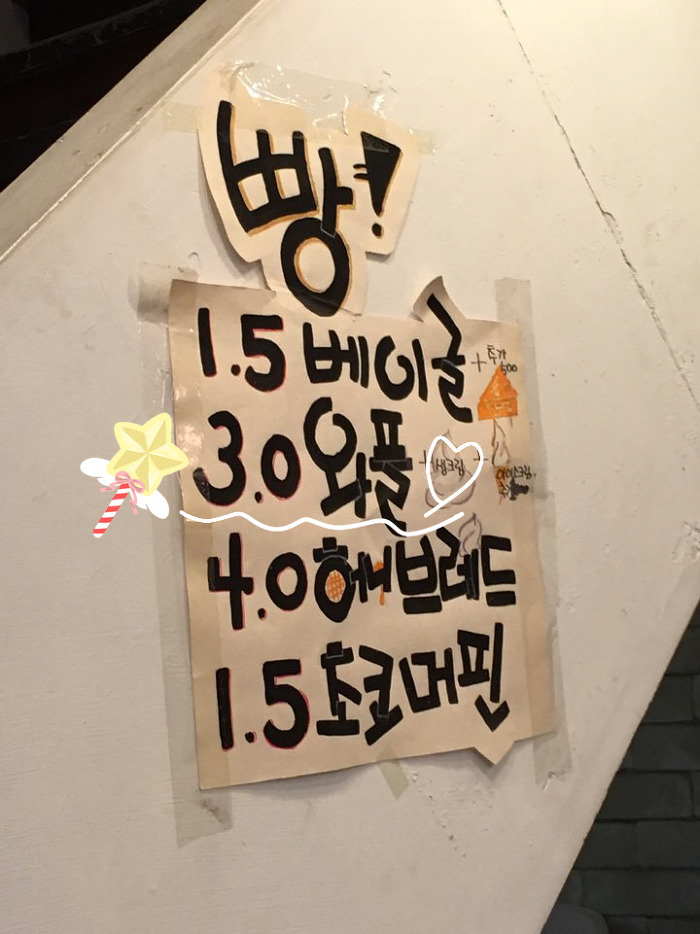 빵!
1.5 베이글 + 추가 500
3.0 와플 + 생크림 + 아이스크림
4.0 허니브레드
1.5 초코머핀